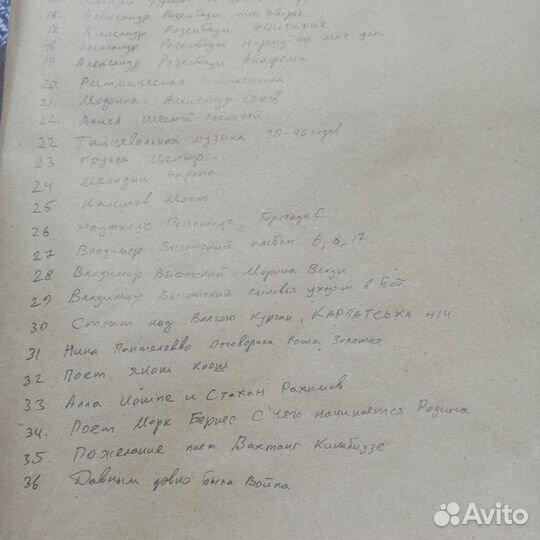 16 Александр Розенбаум
17 Александр Розенбаум Эпитафия
18 Александр Розенбаум нарисуйте мне дом
19 Александр Розенбаум Анафема
20. Ритмическая гимнастика
21. Мадонна. Александр Серов
22 Алиса Шестой Лесничий
22 Танцевальная музыка 30-40 годов
23 группа Центр.
24 Мелодии экрана
25 Калинов Мост
26 Наутилус Помпилиус, Бригада С
27 Владимир Высотский альбом 6, 8, 17
28 Владимир Высотский. Марина Влади
29 Владимир Высотский сыновья уходят в Бой
30 Стоит над Волгою Курган, КАРПАТСЬКА НІЧ
31 Нина Пантелеево Отговорила Роща Золотая
32 Поет Янош Коош
33 Алла Иошпе и Стахан Рахимов
34. Поет Марк Бернес С чего начинается Родина
35. Пожелание поет Вахтанг Кикабидзе
36 Давным давно была Война
Avito